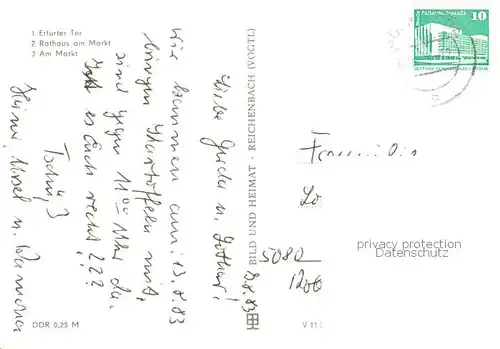 1 Erfurter Tor
2 Rathaus am Markt
3 Am Markt
Liebe Gerda u. Lothar!
Wir kommen am 13.8.83
bringen Kartoffeln mit,
sind gegen 11 00 Uhr da.
Ist es Euch recht???
Tschüß
Heiner, Ursel u. Ramona
DDR 0,25 M
BILD UND HEIMAT · REICHENBACH (VOGTL)
V 11
2.8.83
Berlin, Palast der Republik
10
Familie
5080
1200
privacy protection
Datenschutz